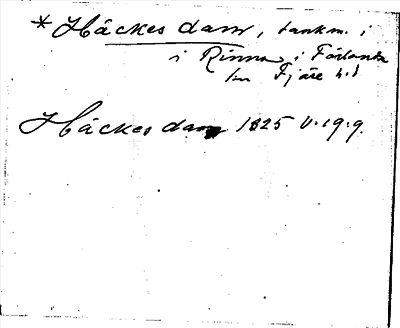 *Häckes dam, tankm. i
i Rinna i Förlanda
sn Fjäre hd
Häckes dam 1825 U:19:9.